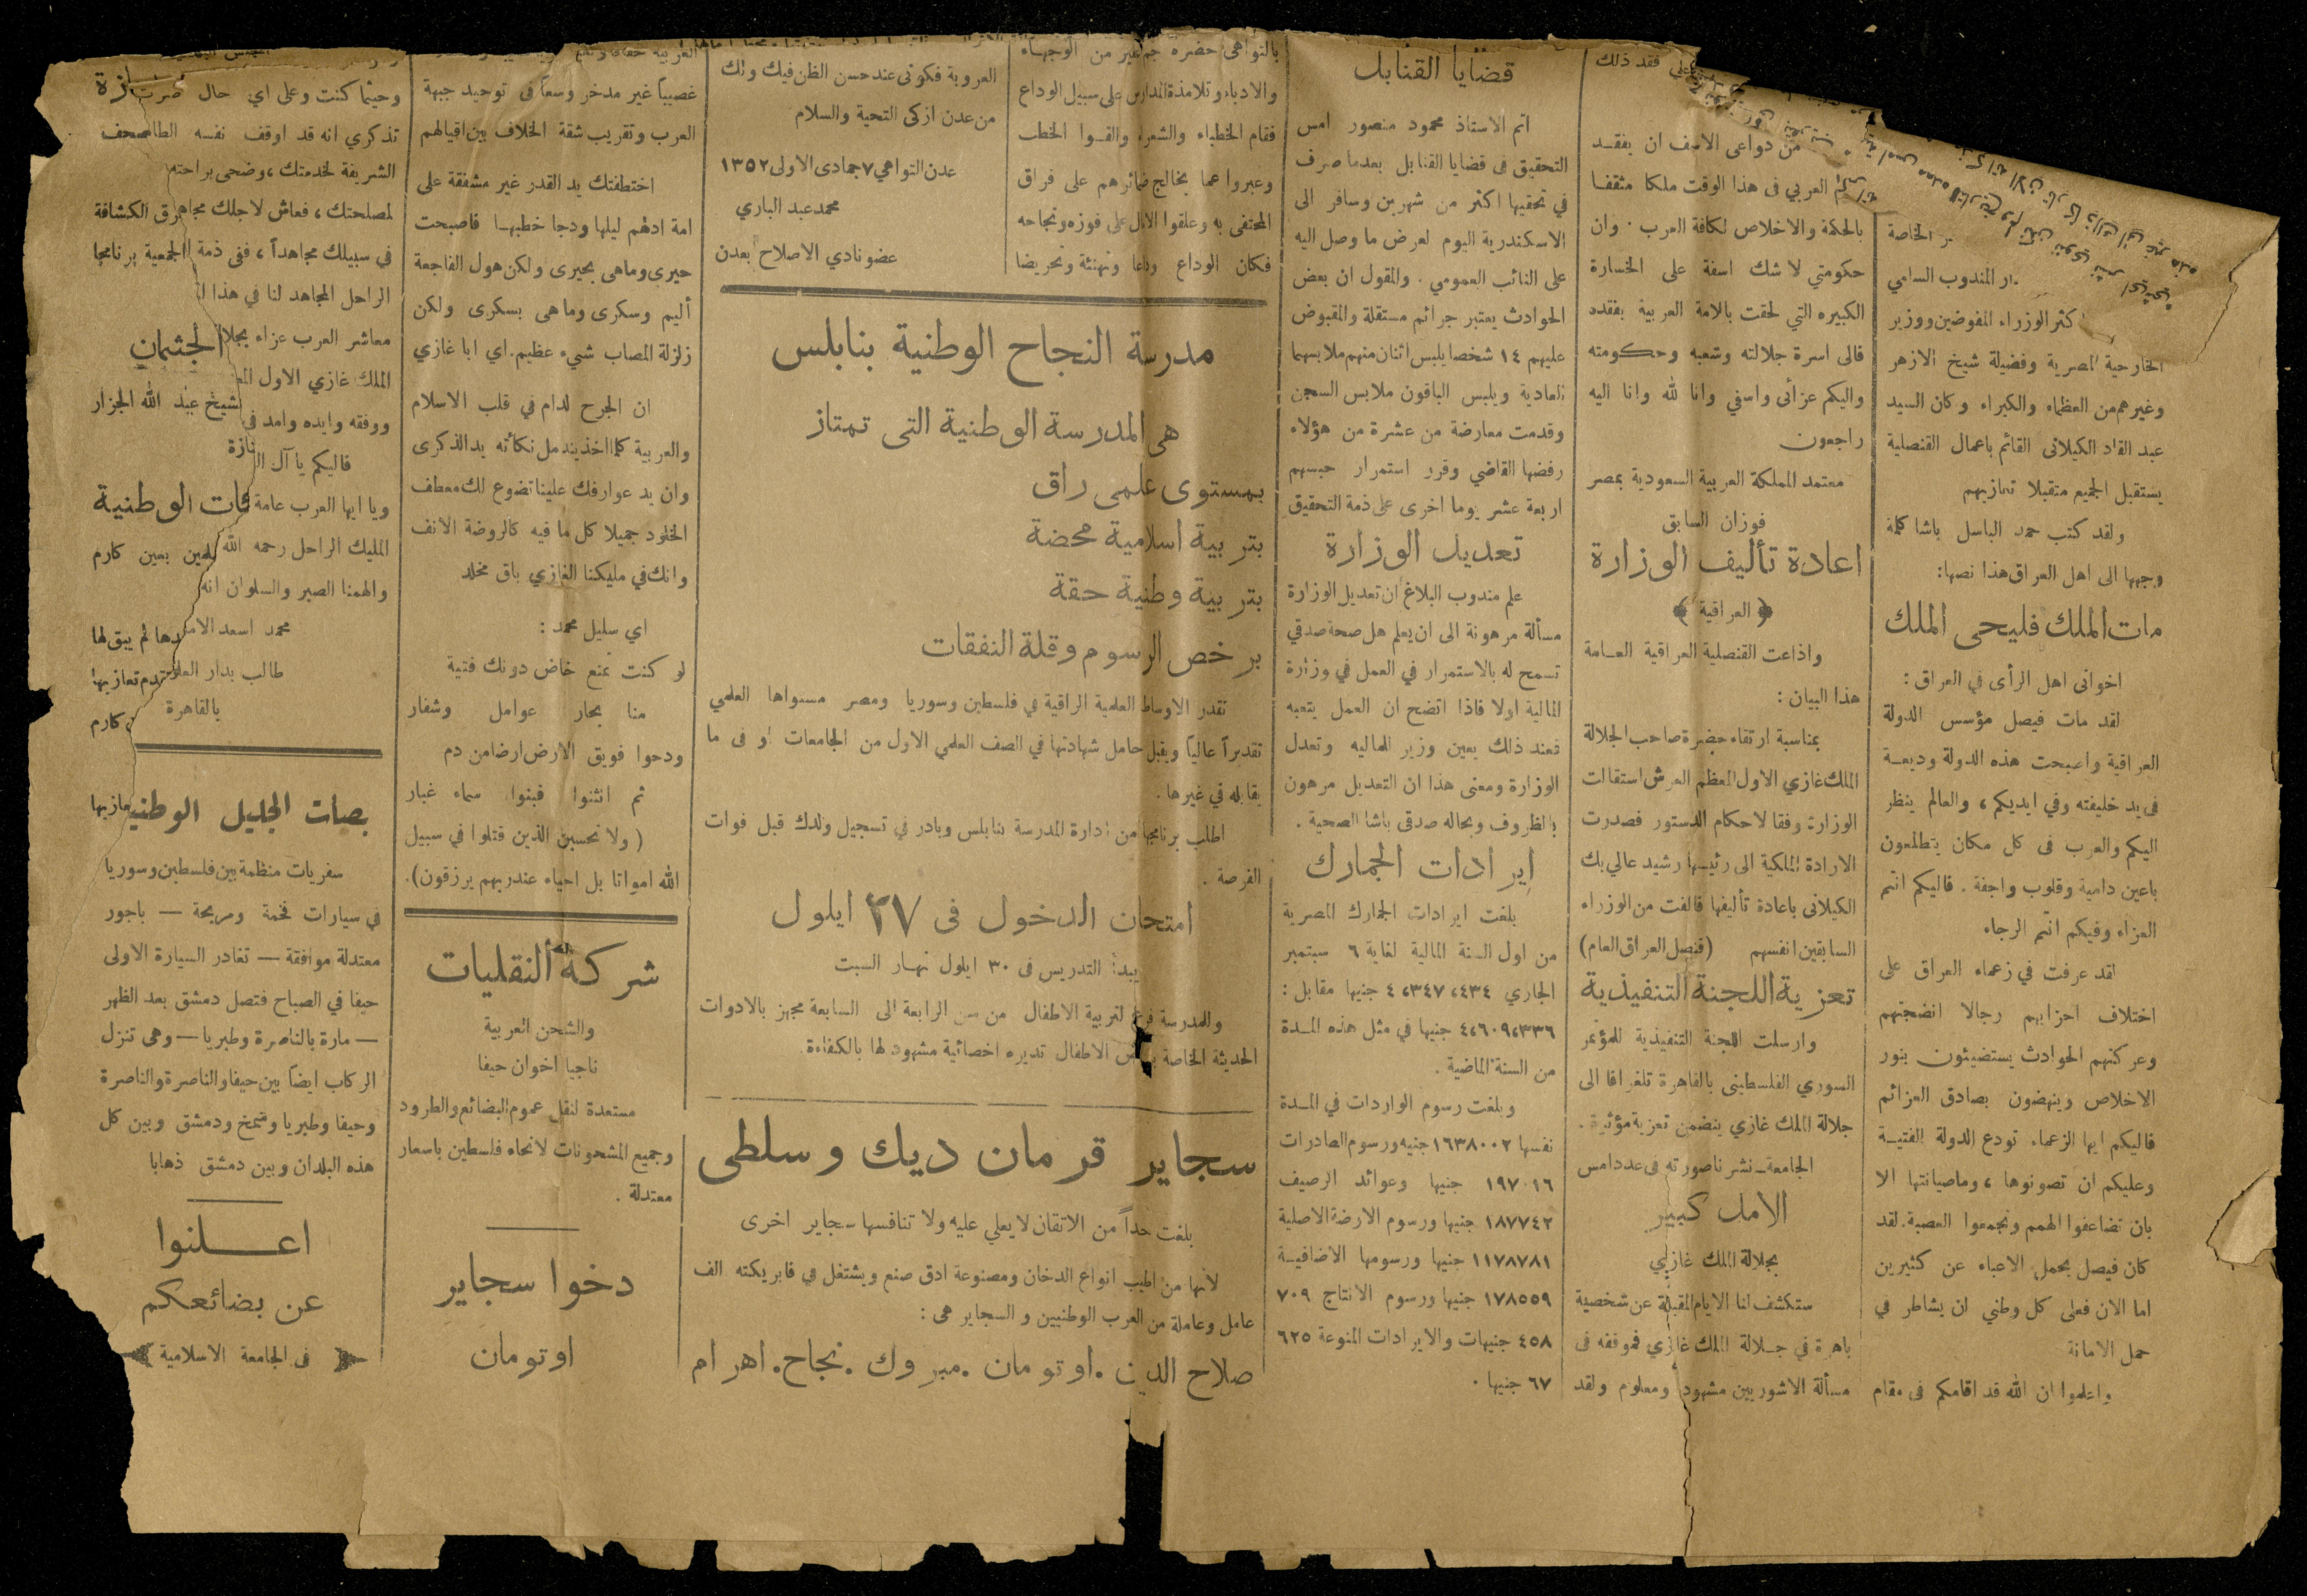 ـر الخاصة
دار المندوب السامي
كثر الوزراء المفوضين ووزير
الخارجية المصرية وفضيلة شيخ الازهر
وغيرهم من العظماء والكبراء وكان السيد
عبد القاد الكيلانى القائم باعمال القنصلية
يستقبل الجميع متقبلا تعازيهم
ولقد كتب حمد الباسل باشا كلمة
وجهها الى اهل العراق هذا نصها:
مات الملك فليحى الملك
اخوانى اهل الرأى في العراق :
لقد مات فيصل مؤسس الدولة
العراقية واصبحت هذه الدولة وديعـة
فى يد خليفته وفي ايديكم ، والعالم ينظر
اليكم والعرب فى كل مكان يتطلعون
باعين دامية وقلوب واجفة . فاليكم انتم
العزاء وفيكم انتم الرجاء
لقد عرفت في زعماء العراق على
اختلاف احزابهم رجالا انضجتهم
وعركتهم الحوادث يستضيئون بنور
الاخلاص وينهضون بصادق العزائم
فاليكم ايها الزعماء تودع الدولة الفتيـة
وعليكم ان تصونوها ، وماصيانتها الا
بان تضاعفوا الهمم وتجمعوا العصبة . لقد
كان فيصل يحمل الاعباء عن كثيرين
اما الان فعلى كل وطني ان يشاطر في
حمل الامانة
واعلموا ان الله قد اقامكم فى مقام
فقد ذلك
من دواعى الاسف ان يفقـد
العربي فى هذا الوقت ملكا مثقفـا
بالحكمة والاخلاص لكافة العرب . وان
حكومتي لا شك اسفة على الخسارة
الكبيره التي لحقت بالامة العربية بفقده
فالى اسرة جلالته وشعبه وحكومته
واليكم عزائى واسفي وانا لله وانا اليه
راجعون
معتمد المملكة العربية السعودية بمصر
فوزان السابق
اعادة تأليف الوزارة
﴿ العراقية ﴾
واذاعت القنصلية العراقية العـامة
هذا البيان :
بمناسبة ارتقاء حضرة صاحب الجلالة
الملك غازي الاول المعظم العرش استقالت
الوزارة وفقا لاحكام الدستور فصدرت
الارادة الملكية الى رئيسها رشيد عالي بك
الكيلانى باعادة تأليفها فالفت من الوزراء
السابقين انفسهم (قنصل العراق العام)
تعزية اللجنة التنفيذية
وارسلت اللجنة التنفيذية للمؤتمر
السوري الفلسطينى بالقاهرة تلغرافا الى
جلالة الملك غازي يتضمن تعزية مؤثرة .
الجامعة ـ نشرنا صورته فى عدد امس
الامل كبير
بجلالة الملك غازي
ستكشف لنا الايام المقبلة عن شخصية
باهرة في جـلالة الملك غازي فموقفه فى
مسألة الاشوريين مشهود ومعلوم ولقد
قضايا القنابل
اتم الاستاذ محمود منصور امس
التحقيق فى قضايا القنابل بعدما صرف
في تحقيها اكثر من شهرين وسافر الى
الاسكندرية اليوم لعرض ما وصل اليه
على النائب العمومي . والمقول ان بعض
الحوادث يعتبر جرائم مستقلة والمقبوض
عليهم ١٤ شخصا يلبس اثنان منهم ملابسهما
العادية ويلبس الباقون ملابس السجن
وقدمت معارضة من عشرة من هؤلاء
رفضها القاضي وقرر استمرار حبسهم
اربعة عشر يوما اخرى على ذمة التحقيق
تعديل الوزارة
علم مندوب البلاغ ان تعديل الوزارة
مسألة مرهونة الى ان يعلم هل صحة صدقي
تسمح له بالاستمرار في العمل في وزارة
المالية اولا فاذا اتضح ان العمل يتعبه
فعند ذلك يعين وزير للماليه وتعدل
الوزارة ومعنى هذا ان التعديل مرهون
بالظروف وبحاله صدقى باشا الصحية .
ايرادات الجمارك
بلغت ايرادات الجمارك المصرية
من اول السنة المالية لغاية ٦ سبتمبر
الجاري ٤،٣٤٧،٤٣٤ جنيها مقابل :
٤،٦٠٩،٣٣٦ جنيها في مثل هذه المـدة
من السنة الماضية .
وبلغت رسوم الواردات في المـدة
نفسها ١٦٣٨٠٠٢ جنيه ورسوم الصادرات
١٩٧٠١٦ جنيها وعوائد الرصيف
١٨٧٧٤٢ جنيها ورسوم الارضة الاصلية
١١٧٨٧٨١ جنيها ورسومها الاضافيـة
١٧٨٥٥٩ جنيها ورسوم الانتاج ٧٠٩
٤٥٨ جنيهات والايرادات المنوعة ٦٢٥
٦٧ جنيها .
بالتواهى حضره جم غفير من الوجهـاء
والادباء وتلامذة المدارس على سبيل الوداع
فقام الخطباء والشعراء والقـوا الخطب
وعبروا عما يخالج ضمائرهم على فراق
المحتفى به وعلقوا الامال على فوزه ونجاحه
فكان الوداع وداعا وتهنئة وتحريضا
العروبة فكونى عند حسن الظن فيك ولك
من عدن ازكى التحية والسلام
عدن التواهي ٧ جمادى الاولى ١٣٥٢
محمد عبد الباري
عضو نادي الاصلاح بعدن
مدرسة النجاح الوطنية بنابلس
هى المدرسة الوطنية التى تمتاز
بمستوى علمى راق
بتربية اسلامية محضة
بتربية وطنية حقة
برخص الرسوم وقلة النفقات
تقدر الاوساط العلمية الراقية في فلسطين وسوريا ومصر مستواها العلمي
تقديراً عالياً ويقبل حامل شهادتها في الصف العلمي الاول من الجامعات او فى ما
يقابله في غيرها .
اطلب برنامجها من ادارة المدرسة بنابلس وبادر في تسجيل ولدك قبل فوات
الفرصة .
امتحان الدخول فى ٢٧ ايلول
يبدأ التدريس فى ٣٠ ايلول نهـار السبت
وللمدرسة فرع لتربية الاطفال من سن الرابعة الى السابعة مجهز بالادوات
الحديثة الخاصة الاطفال تديره اخصائية مشهود لها بالكفاءة
سجاير قرمان ديك وسلطى
بلغت حداً من الاتقان لا يعلي عليه ولا تنافسها سجاير اخرى
لانها من اطيب انواع الدخان ومصنوعة ادق صنع ويشتغل في فابريكته الف
عامل وعاملة من العرب الوطنيين والسجاير هى :
صلاح الدين . اوتومان . مبروك . نجاح . اهرام
غصيباً غير مدخر وسعاً فى توحيد جبهة
العرب وتقريب شقة الخلاف بين اقيالهم
اختطفتك يد القدر غير مشفقة على
امة ادلهم ليلها ودجا خطبهـا فاصبحت
حيرى وماهى بحيرى ولكن هول الفاجعة
أليم وسكرى وما هى بسكرى ولكن
زلزلة المصاب شيء عظيم . اي ابا غازي
ان الجرح لدام في قلب الاسلام
والعربية كلما اخذ يندمل نكأته يد الذكرى
وان يد عوارفك علينا تضوع لك معطف
الخلود جميلا كل ما فيه كالروضة الانف
وانك في مليكنا الغازي باق مخلد
اي سليل محمد :
لو كنت تمنع خاض دونك فتية
منا بحار عوامل وشفار
ودحوا فويق الارض ارضا من دم
ثم انثنوا فبنوا سماء غبار
( ولا تحسبن الذين قتلوا في سبيل
الله امواتا بل احياء عند ربهم يرزقون ) .
شركة النقليات
والشحن العربية
ناجيا اخوان حيفا
مستعدة لنقل عموم البضائع والطرود
وجميع المشحونات لانحاء فلسطين باسعار
معتدلة .
دخوا سجاير
اوتومان
وحيثما كنت وعلى اي حال
تذكري انه قد اوقف نفسه
الشريفة لخدمتك ، وضحى براحته
لمصلحتك ، فعاش لاجلك
في سبيلك مجاهداً ، ففى ذمة
الراحل المجاهد لنا في هذا
معاشر العرب عزاء
الملك غازي الاول
ووفقه وايده وامد فى
فاليكم يا آل
ويا ايها العرب عامة
المليك الراحل رحمه الله
والهمنا الصبر والسلوان انه
محمد اسعد
طالب بدار
بالقاهرة
صحف
الكشافة
الجمعية برنامجها
الجثمان
شيخ عبد الله الجزار
ات الوطنية
بعين كارم
لم يبق لها
تعازيها
كارم
بصات الجليل الوطنية
سفريات منظمة بين فلسطين وسوريا
في سيارات فخمة ومريحة — باجور
معتدلة موافقة — تغادر السيارة الاولى
حيفا في الصباح فتصل دمشق بعد الظهر
— مارة بالناصرة وطبريا — وهى تنزل
الركاب ايضاً بين حيفا والناصرة والناصرة
وحيفا وطبريا وسمخ ودمشق وبين كل
هذه البلدان وبين دمشق ذهابا
اعـــلنوا
عن بضائعكم
فى الجامعة الاسلامية